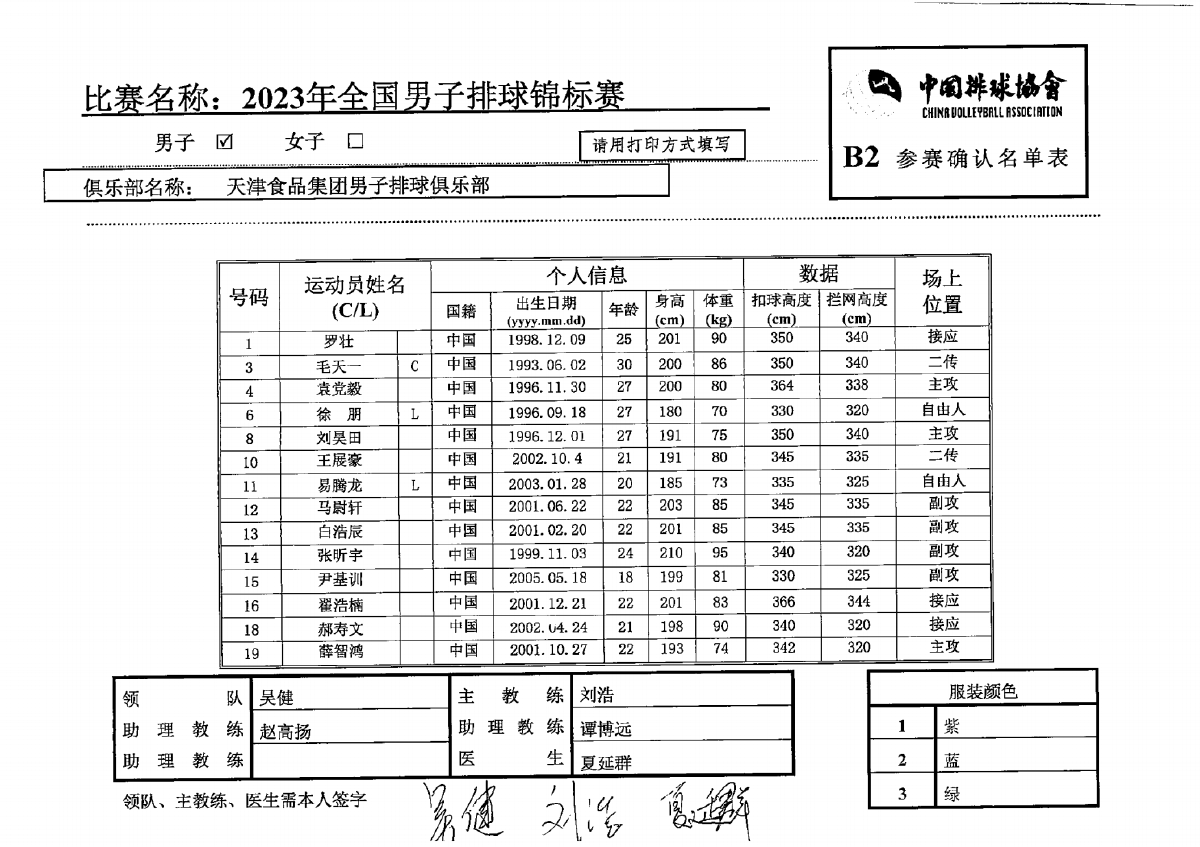 比赛名称：2023年全国男子排球锦标赛
男子 ☑ 女子 □
请用打印方式填写
中国排球協會
CHINA VOLLEYBALL ASSOCIATION
B2 参赛确认名单表
俱乐部名称： 天津食品集团男子排球俱乐部
号码 运动员姓名 (C/L) 个人信息 数据 场上位置
国籍 出生日期 (yyyy.mm.dd) 年龄 身高 (cm) 体重 (kg) 扣球高度 (cm) 拦网高度 (cm)
1 罗壮 中国 1998.12.09 25 201 90 350 340 接应
3 毛天一 C 中国 1993.06.02 30 200 86 350 340 二传
4 袁党毅 中国 1996.11.30 27 200 80 364 338 主攻
6 徐 朋 L 中国 1996.09.18 27 180 70 330 320 自由人
8 刘昊田 中国 1996.12.01 27 191 75 350 340 主攻
10 王展豪 中国 2002.10.4 21 191 80 345 335 二传
11 易腾龙 L 中国 2003.01.28 20 185 73 335 325 自由人
12 马尉轩 中国 2001.06.22 22 203 85 345 335 副攻
13 白浩辰 中国 2001.02.20 22 201 85 345 335 副攻
14 张昕宇 中国 1999.11.03 24 210 95 340 320 副攻
15 尹基训 中国 2005.05.18 18 199 81 330 325 副攻
16 翟浩楠 中国 2001.12.21 22 201 83 366 344 接应
18 郝寿文 中国 2002.04.24 21 198 90 340 320 接应
19 薛智鸿 中国 2001.10.27 22 193 74 342 320 主攻
领队 吴健 主教练 刘浩
助理教练 赵高扬 助理教练 谭博远
助理教练 医生 夏延群
服装颜色
1 紫
2 蓝
3 绿
领队、主教练、医生需本人签字
吴健 刘浩 夏延群